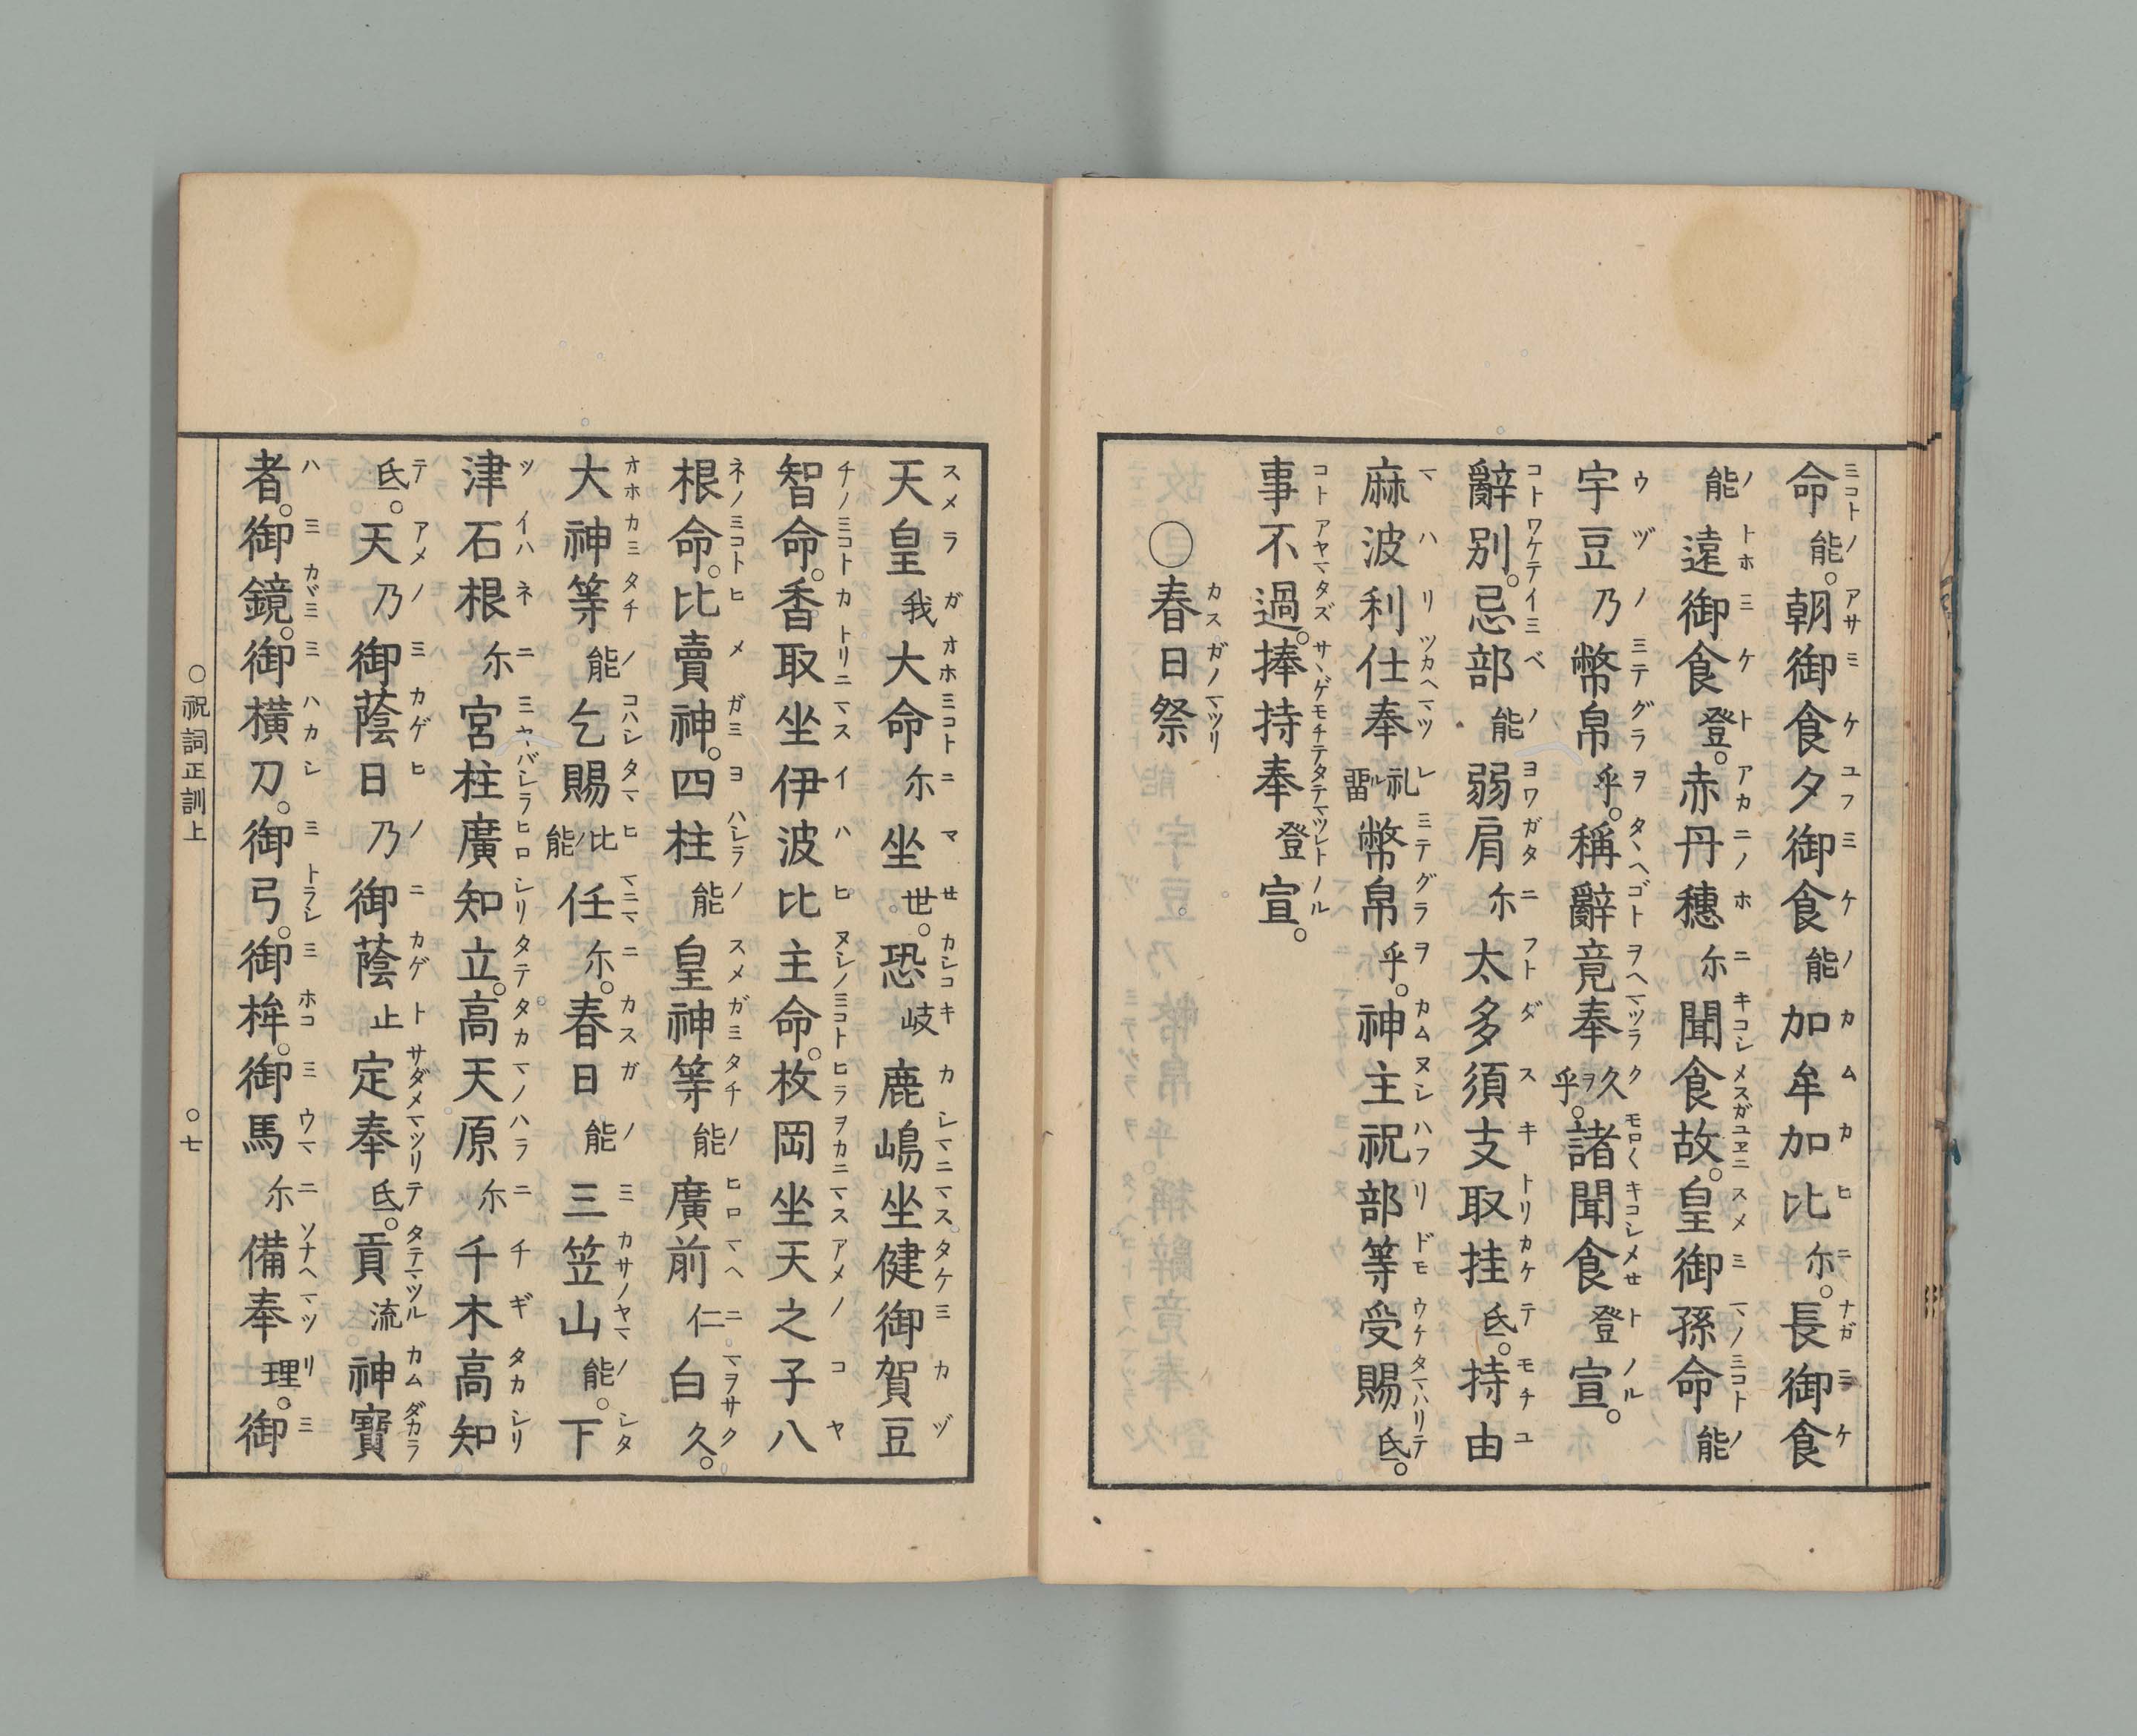 命能。朝御食夕御食能加牟加比尓。長御食
能遠御食登。赤丹穗尓聞食故。皇御孫命能
宇豆乃幣帛乎。稱辭竟奉久乎。諸聞食登宣。
辭別。忌部能弱肩尓太多須支取挂氐。持由
麻波利仕奉礼留幣帛乎。神主祝部等受賜氐。
事不過。捧持奉登宣。
〇春日祭
天皇我大命尓坐世。恐岐鹿嶋坐健御賀豆
智命。香取坐伊波比主命。枚岡坐天之子八
根命。比賣神。四柱能皇神等能廣前仁白久。
大神等能乞賜比能任尓。春日能三笠山能。下
津石根尓宮柱廣知立。高天原尓千木高知
氐。天乃御蔭日乃御蔭止定奉氐。貢流神寶
者。御鏡。御横刀。御弓。御桙。御馬尓備奉理。御
〇祝詞正訓上 〇七